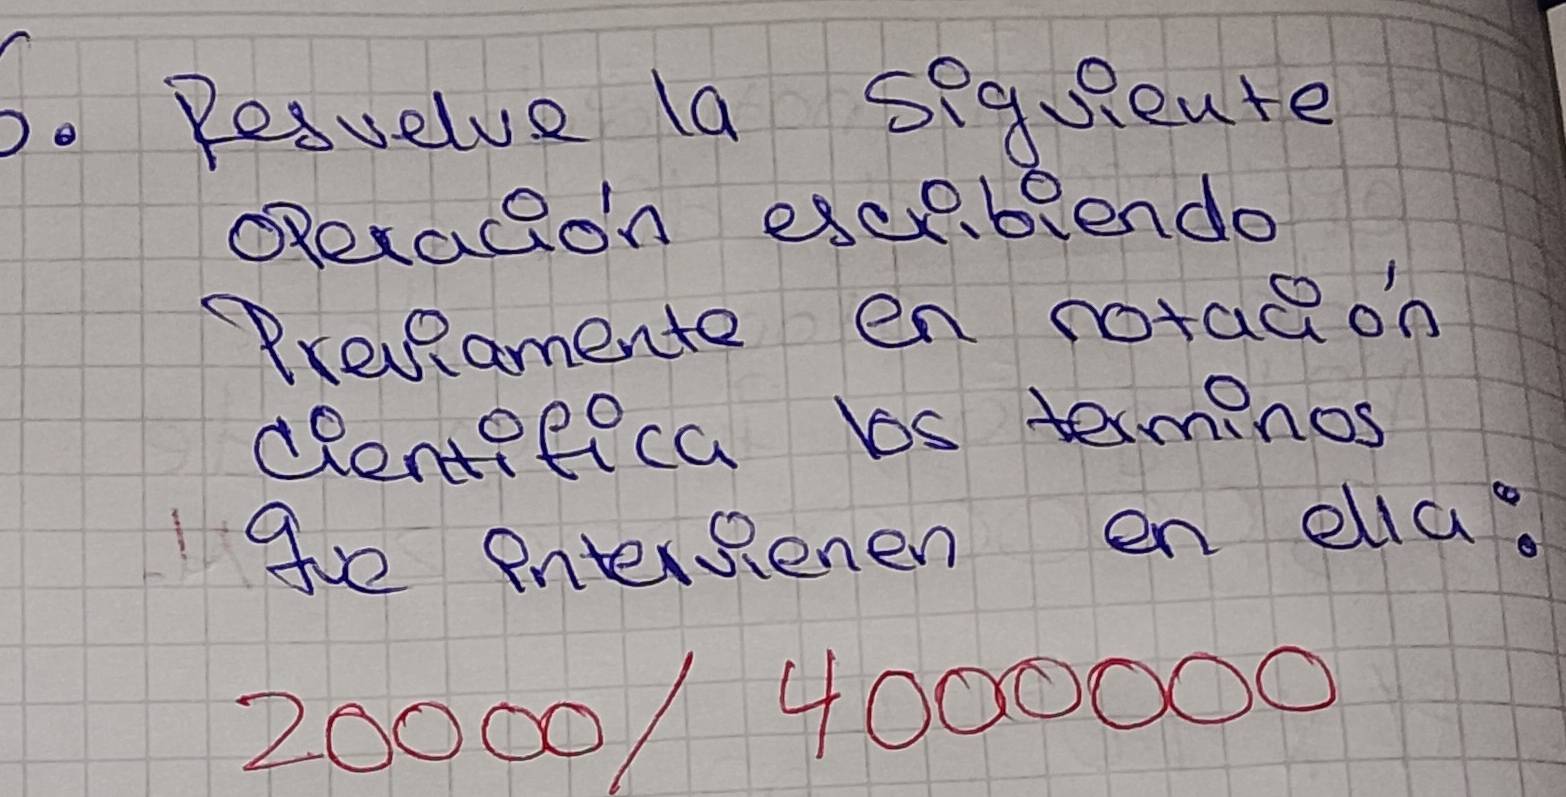 6. Resuelve la siguiente
operación escribiendo
Previamente en notación
cientifica los terminos
que intervienen en ella:
20000/4000000